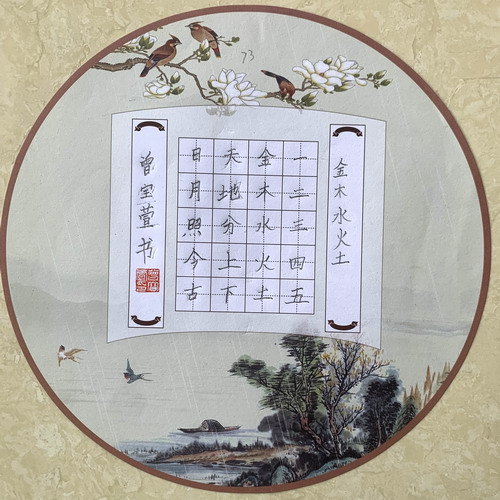 73
金木水火土
一二三四五
金木水火土
天地分上下
日月照今古
曾宝萱书